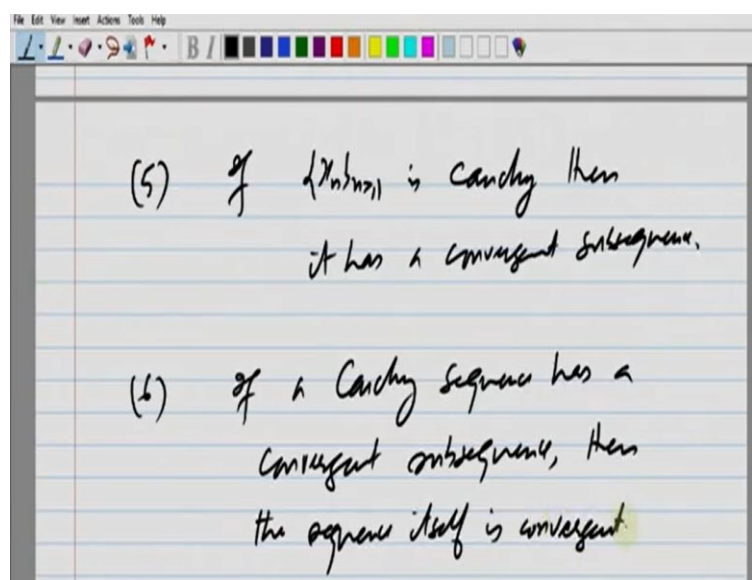 File Edit View Insert Actions Tools Help
B I
(5) If {xn}n≥1 is Cauchy then
it has a convergent subsequence.
(6) If a Cauchy sequence has a
convergent subsequence, then
the sequence itself is convergent.